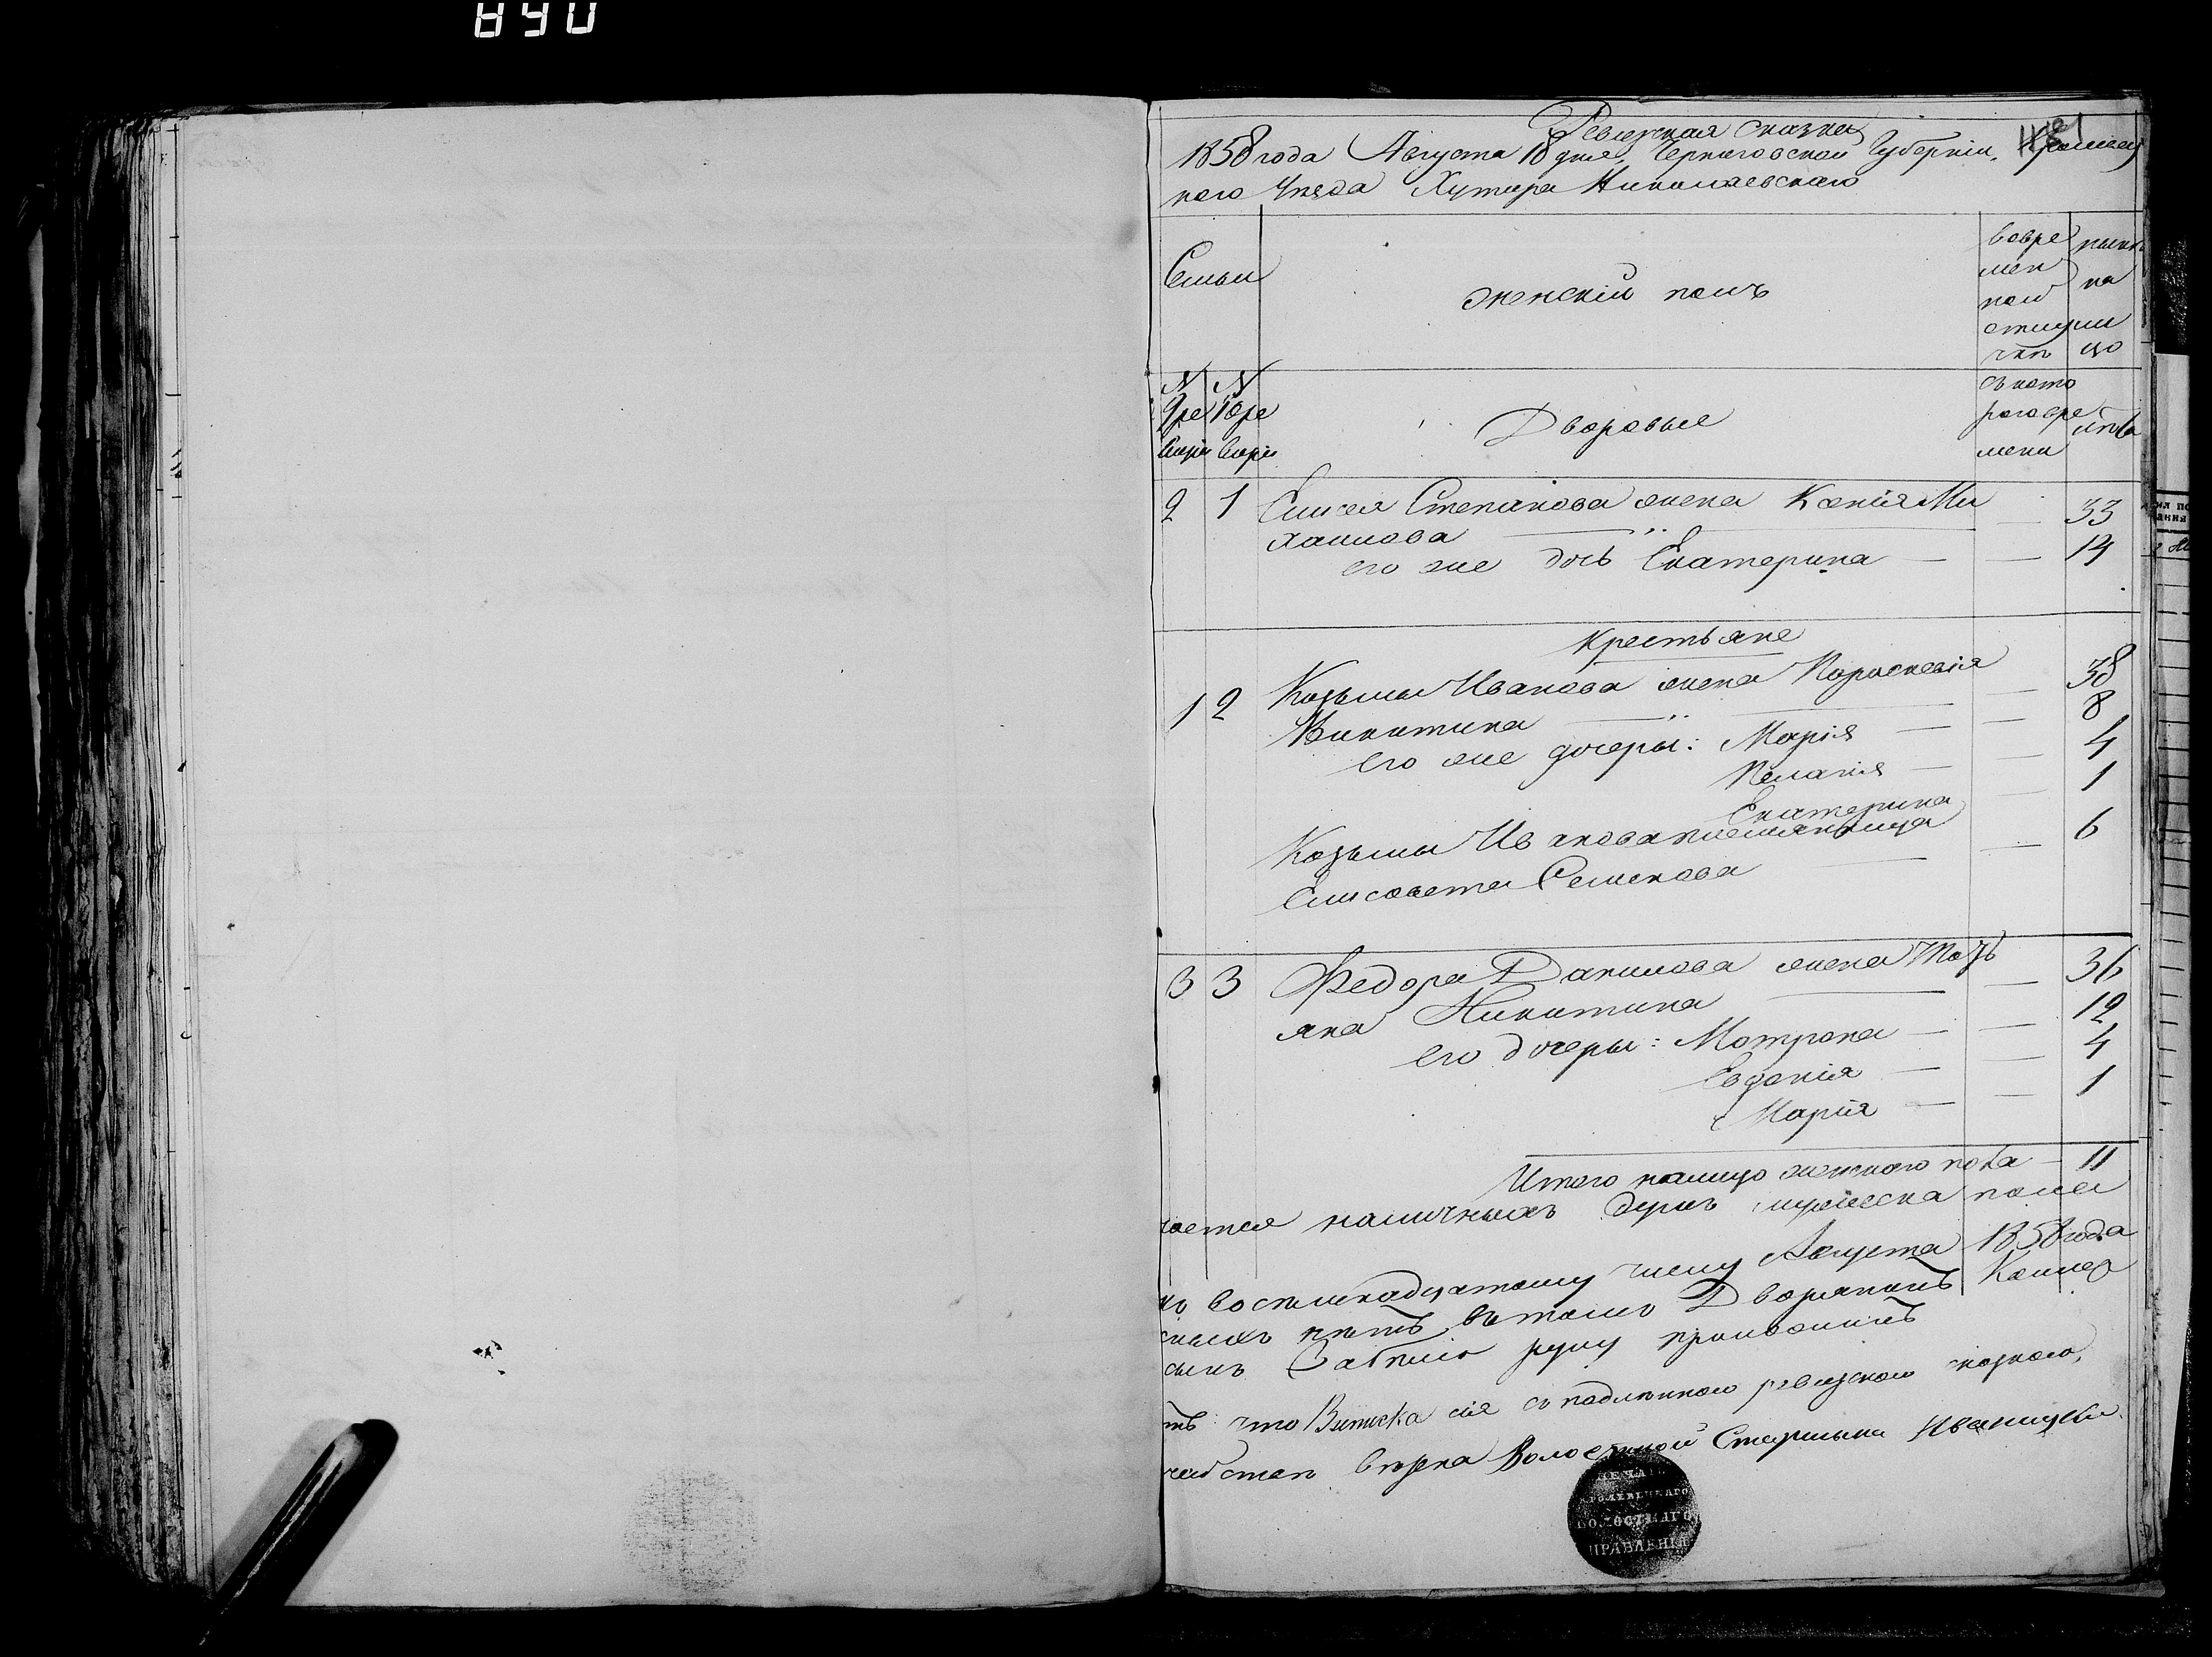 890
Ревизская сказка 1181
1858 года Августа 18 дня, Черниговской Губернии, Кролевец
кого Уезда Хутора Николаевскаго
Семьи
женскій полъ
вовре
мен
ной
отлу
чкѣ
нынѣ
на
ли
цо
N
9 ре
визіи
N
10 ре
визіи
Дворовые
съ кото
рого вре
мени
лѣта
2 1 Елисея Степанова жена Ксенія Ми
хаилова — — 33
его же дочь Екатерина — — 14
Крестьяне
1 2 Козьмы Иванова жена Пораскевія
Никитина — — 38
его же дочеры: Марія — — 8
Пелагія — — 4
Екатерина — 1
Козьмы Иванова племянница
Елисовета Семенова — — 6
3 3 Федора Данилова жена Тать
яна Никитина — — 36
его дочеры: Матрона — — 12
Евдокія — — 4
Марія — — 1
Итого налицо женского пола — 11
чается наличныхъ душъ мужеска пола
къ восемнадцатому числу Августа 1858 года
нѣтъ, въ томъ Дворянинъ
сынъ руку приложилъ
что Выписка сія съ подлинною ревизскою сказкою,
вѣрна Волостной Старшина
ПЕЧАТЬ
КРОЛЕВЕЦКАГО
ВОЛОСТНАГО
ПРАВЛЕНІЯ